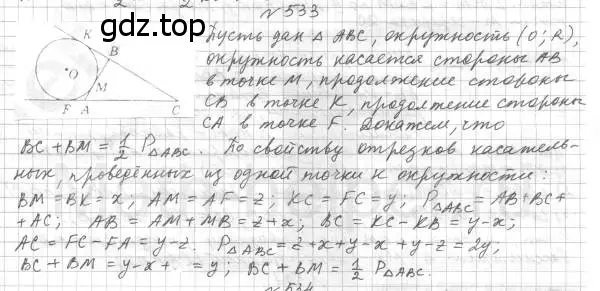 gdz.top
№ 533
K
B
O
M
F A C
Пусть дан △ ABC, окружность (O; R),
окружность касается стороны AB
в точке M, продолжение стороны
CB в точке K, продолжение стороны
CA в точке F. Докажем, что
BC + BM = 1/2 P△ABC. По свойству отрезков касатель-
ных, проведённых из одной точки к окружности:
BM = BK = x, AM = AF = z; KC = FC = y; P△ABC = AB + BC +
+ AC; AB = AM + MB = z + x; BC = KC - KB = y - x;
AC = FC - FA = y - z. P△ABC = z + x + y - x + y - z = 2y;
BC + BM = y - x + = y; BC + BM = 1/2 P△ABC.
№ 534